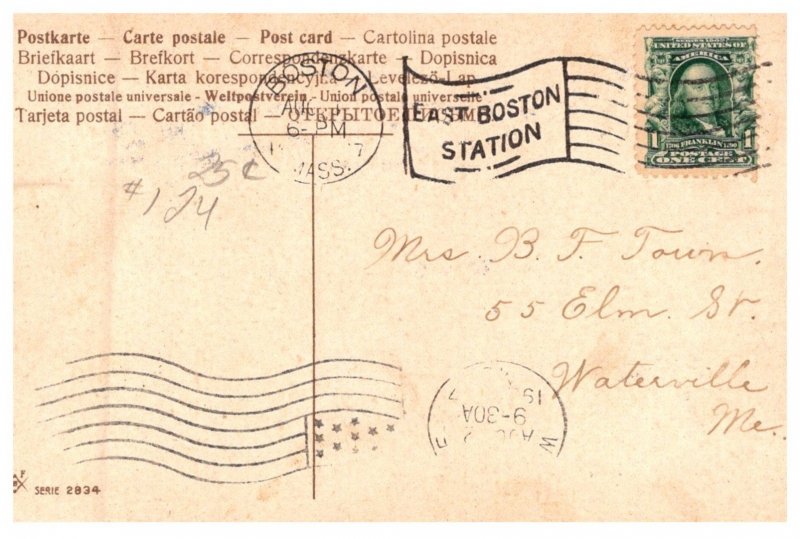 Postkarte — Carte postale — Post card — Cartolina postale
Briefkaart — Brefkort — Correspondenzkarte — Dopisnica
Dópisnice — Karta korespondencyjna — Levelező-Lap
Unione postale universale - Weltpostverein - Union postale universelle
Tarjeta postal — Cartão postal —
BOSTON
6-PM
MASS.
EAST BOSTON
STATION
SERIES 1902
UNITED STATES OF
AMERICA
1 FRANKLIN 1
POSTAGE
ONE CENT
25¢
#124
Mrs. B. F. Town.
55 Elm St.
Waterville
Me.
9-30A
19
SERIE 2834